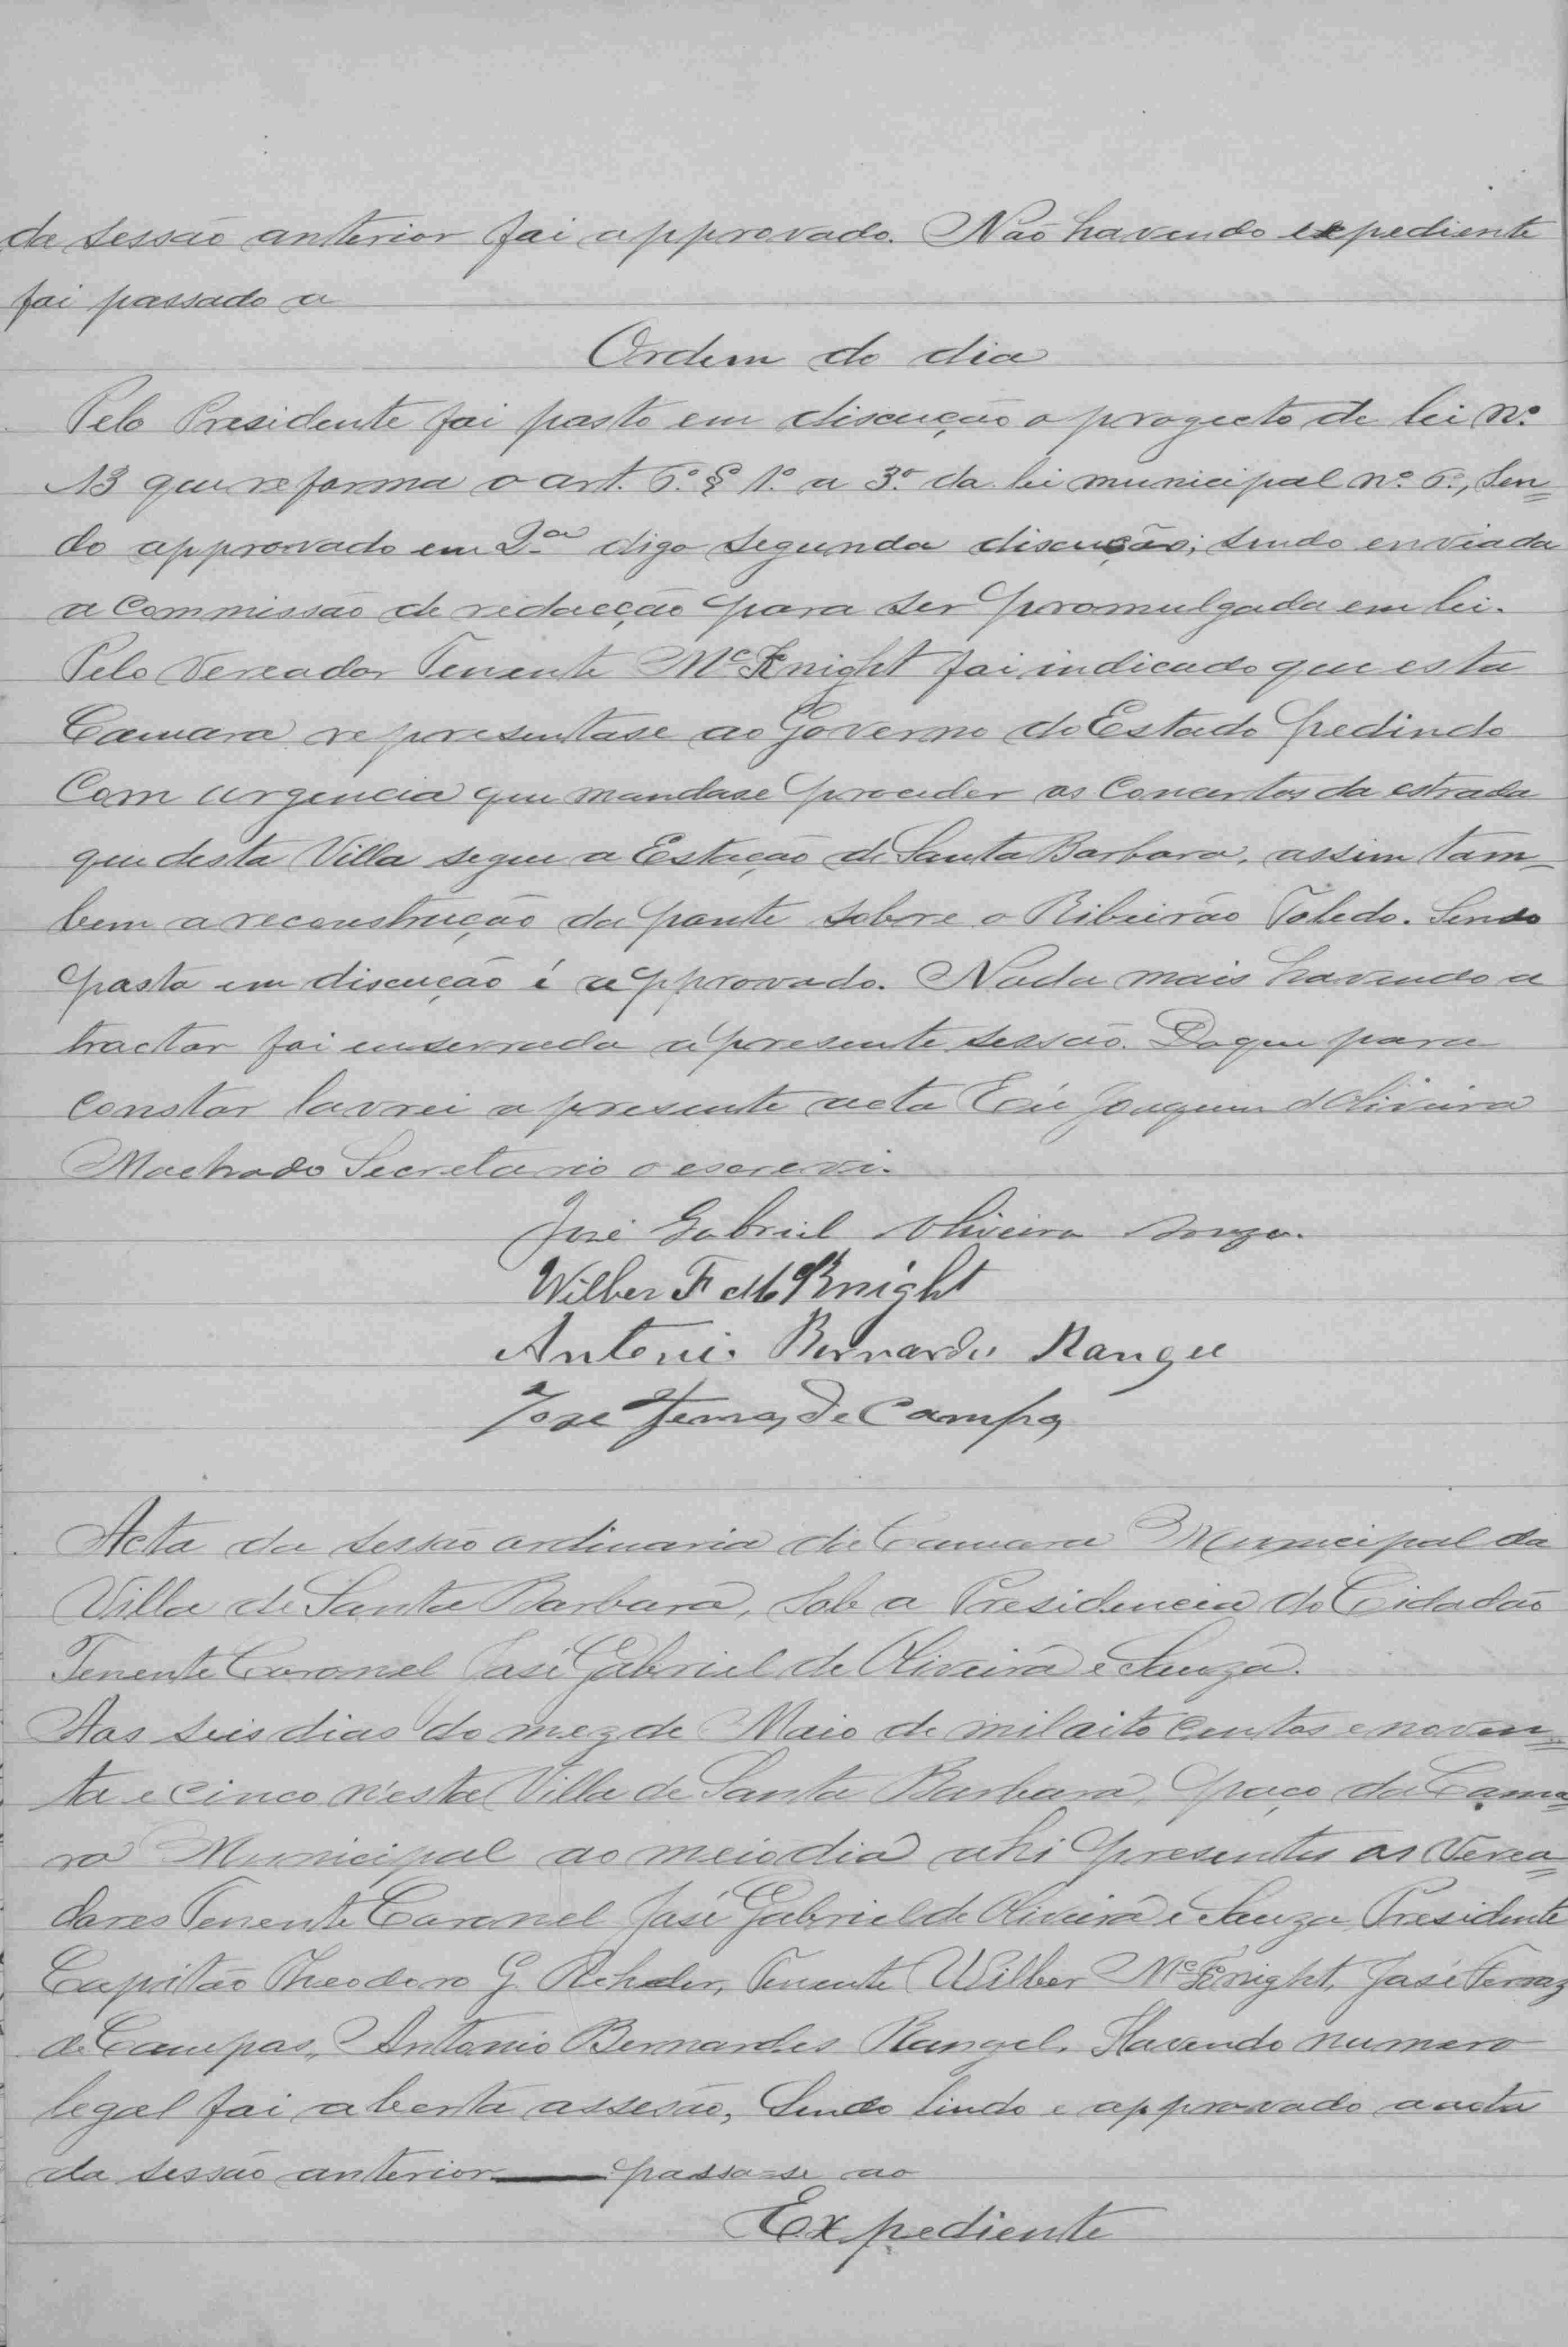 da sessão anterior foi approvado. Não havendo expediente
foi passado a
Ordem do dia
Pelo Presidente foi posto em discução o progecto de lei nº.
13 que reforma o art. 6º. § 1º. a 3º. da lei municipal nº. 6º., sen=
do approvado em 2ª digo segunda discução; sendo enviada
a commissão de redacção para ser promulgada em lei.
Pelo Vereador Tenente McKnight foi indicado que esta
Camara representase ao Governo do Estado pedindo
com urgencia que mandase proceder os concertos da estrada
que desta Villa segue a Estação de Santa Barbara, assim tam-
bem a reconstrução da ponte sobre o Ribeirão Toledo. Sendo
posta em discução é approvado. Nada mais havendo a
tractar foi enserrada a presente sessão. Do que para
constar lavrei a presente acta Eu Joaquim d'Oliveira
Machado Secretario o escrevi.
José Gabriel Oliveira Souza.
Wilber F McKnight
Antonio Bernardes Rangel
Jose Ferraz de Campos
Acta da sessão ordinaria da Camara Municipal da
Villa de Santa Barbara, sob a Presidencia do Cidadão
Tenente Coronel José Gabriel de Oliveira e Souza.
Aos seis dias do mez de Maio de mil oito centos e noven=
ta e cinco n'esta Villa de Santa Barbara, paço da Cama=
ra Municipal ao meio dia ahi presentes os Verea=
dores Tenente Coronel José Gabriel de Oliveira e Souza Presidente
Capitão Theodoro G. Rehder, Tenente Wilber McKnight, José Ferraz
de Campos, Antonio Bernardes Rangel. Havendo numero
legal foi aberta assesão, sendo lindo e approvado a acta
da sessão anterior — passa-se ao
Expediente